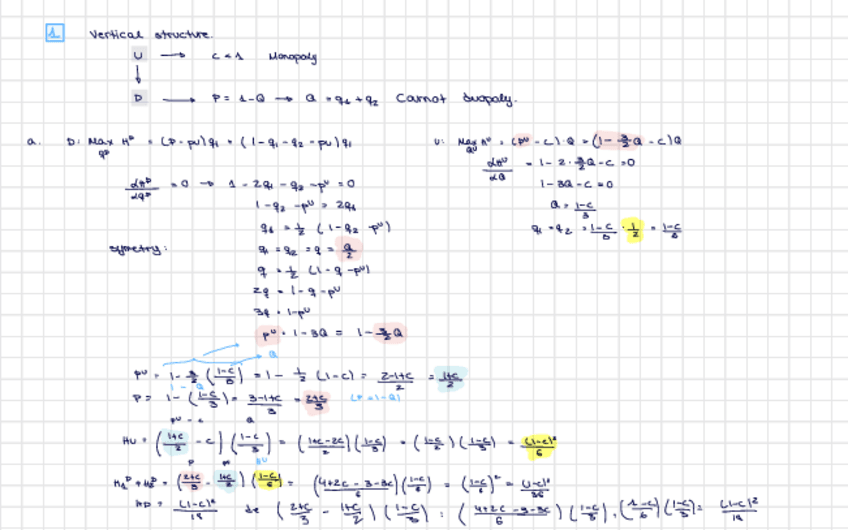 1 Vertical structure.
U → c < 1 Monopoly
↓
D → P = 1-Q → Q = q1 + q2 Carnot duopoly.
a. D: Max πD = (P - pU) q1 = (1 - q1 - q2 - pU) q1
qD
dπD/dqD = 0 → 1 - 2q1 - q2 - pU = 0
1 - q2 - pU = 2q1
q1 = 1/2 (1 - q2 - pU)
symetry: q1 = q2 = q = Q/2
q = 1/2 (1 - q - pU)
2q = 1 - q - pU
3q = 1 - pU
pU = 1 - 3Q = 1 - 3/2 Q
U: Max πU = (pU - c) · Q = (1 - 3/2 Q - c) Q
QU
dπU/dQ = 1 - 2 · 3/2 Q - c = 0
1 - 3Q - c = 0
Q = 1-c/3
q1 = q2 = 1-c/3 · 1/2 = 1-c/6
Q
pU = 1 - 3/2 (1-c/3) = 1 - 1/2 (1-c) = 2-1+c/2 = 1+c/2
1 - Q
P = 1 - (1-c/3) = 3-1+c/3 = 2+c/3 (P = 1-Q)
pU - c Q
πU = (1+c/2 - c) (1-c/3) = (1+c-2c/2) (1-c/3) = (1-c/2) (1-c/3) = (1-c)²/6
π1D + π2D = (2+c/3 - 1+c/2) (1-c/6) = (4+2c-3-3c/6) (1-c/6) = (1-c/6)² = (1-c)²/36
πD = (1-c)²/18 de (2+c/3 - 1+c/2) (1-c/3) : (4+2c-3-3c/6) (1-c/3) . (1-c/6) (1-c/3) = (1-c)²/18